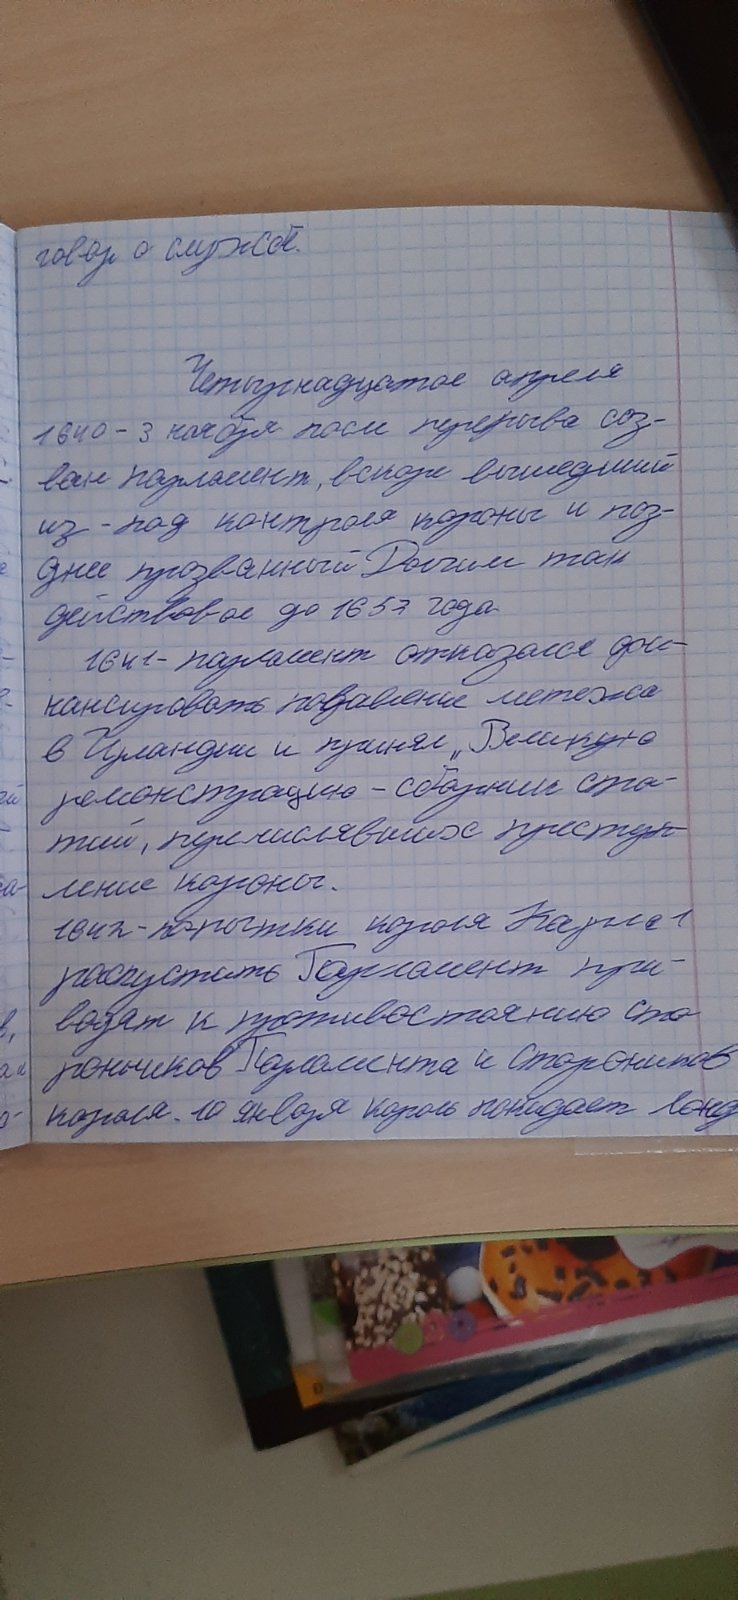 говор о службе.
Четырнадцатое апреля
1640 - 3 ноября после перерыва соз-
ван парламент, вскоре вышедший
из-под контроля короны и поз-
днее прозванный Долгим
действовал до 1653 года
1641 - парламент отказался фи-
нансировать подавление мятежа
в Ирландии и принял „Великую
ремонстрацию - сборник ста-
тей, перечислявших преступ-
ление короны.
1642 - попытки короля Карла 1
распустить Парламент при-
водят к противостоянию сто
ронников Парламента и сторонников
короля. 10 января король покидает Лонд